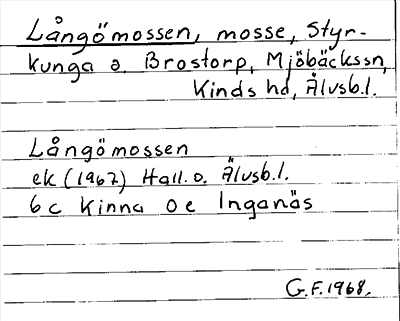 Långömossen, mosse, Styr-
kunga o. Brostorp, Mjöbäckssn,
Kinds hd, Älvsb.l.
Långömossen
ek (1967) Hall.o. Älvsb.l.
6c Kinna 0e Inganäs
G.F.1968.